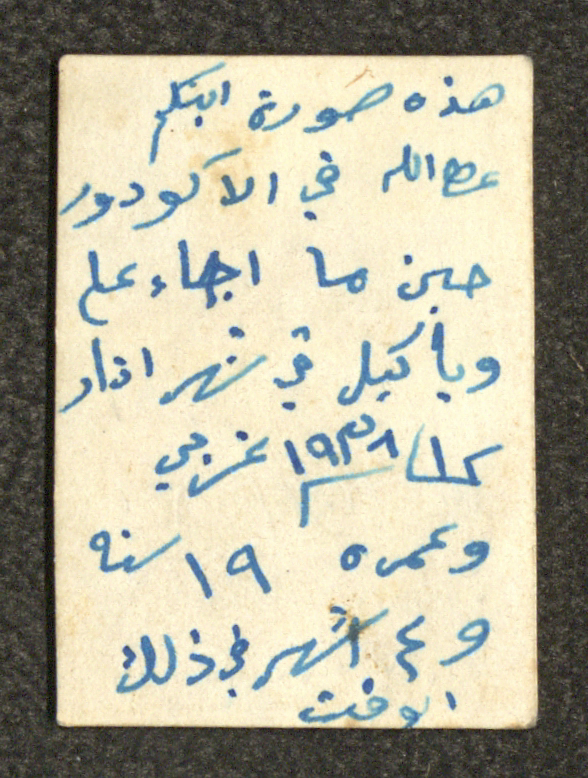 هذه صورة ابنكم
عطاالله في الاكودور
حين ما اجاء على
وياكيل في شهر اذار
١٩٣٨ غربي
وعمره ١٩ سنه
و ٤ اشهر في ذلك
الوقت